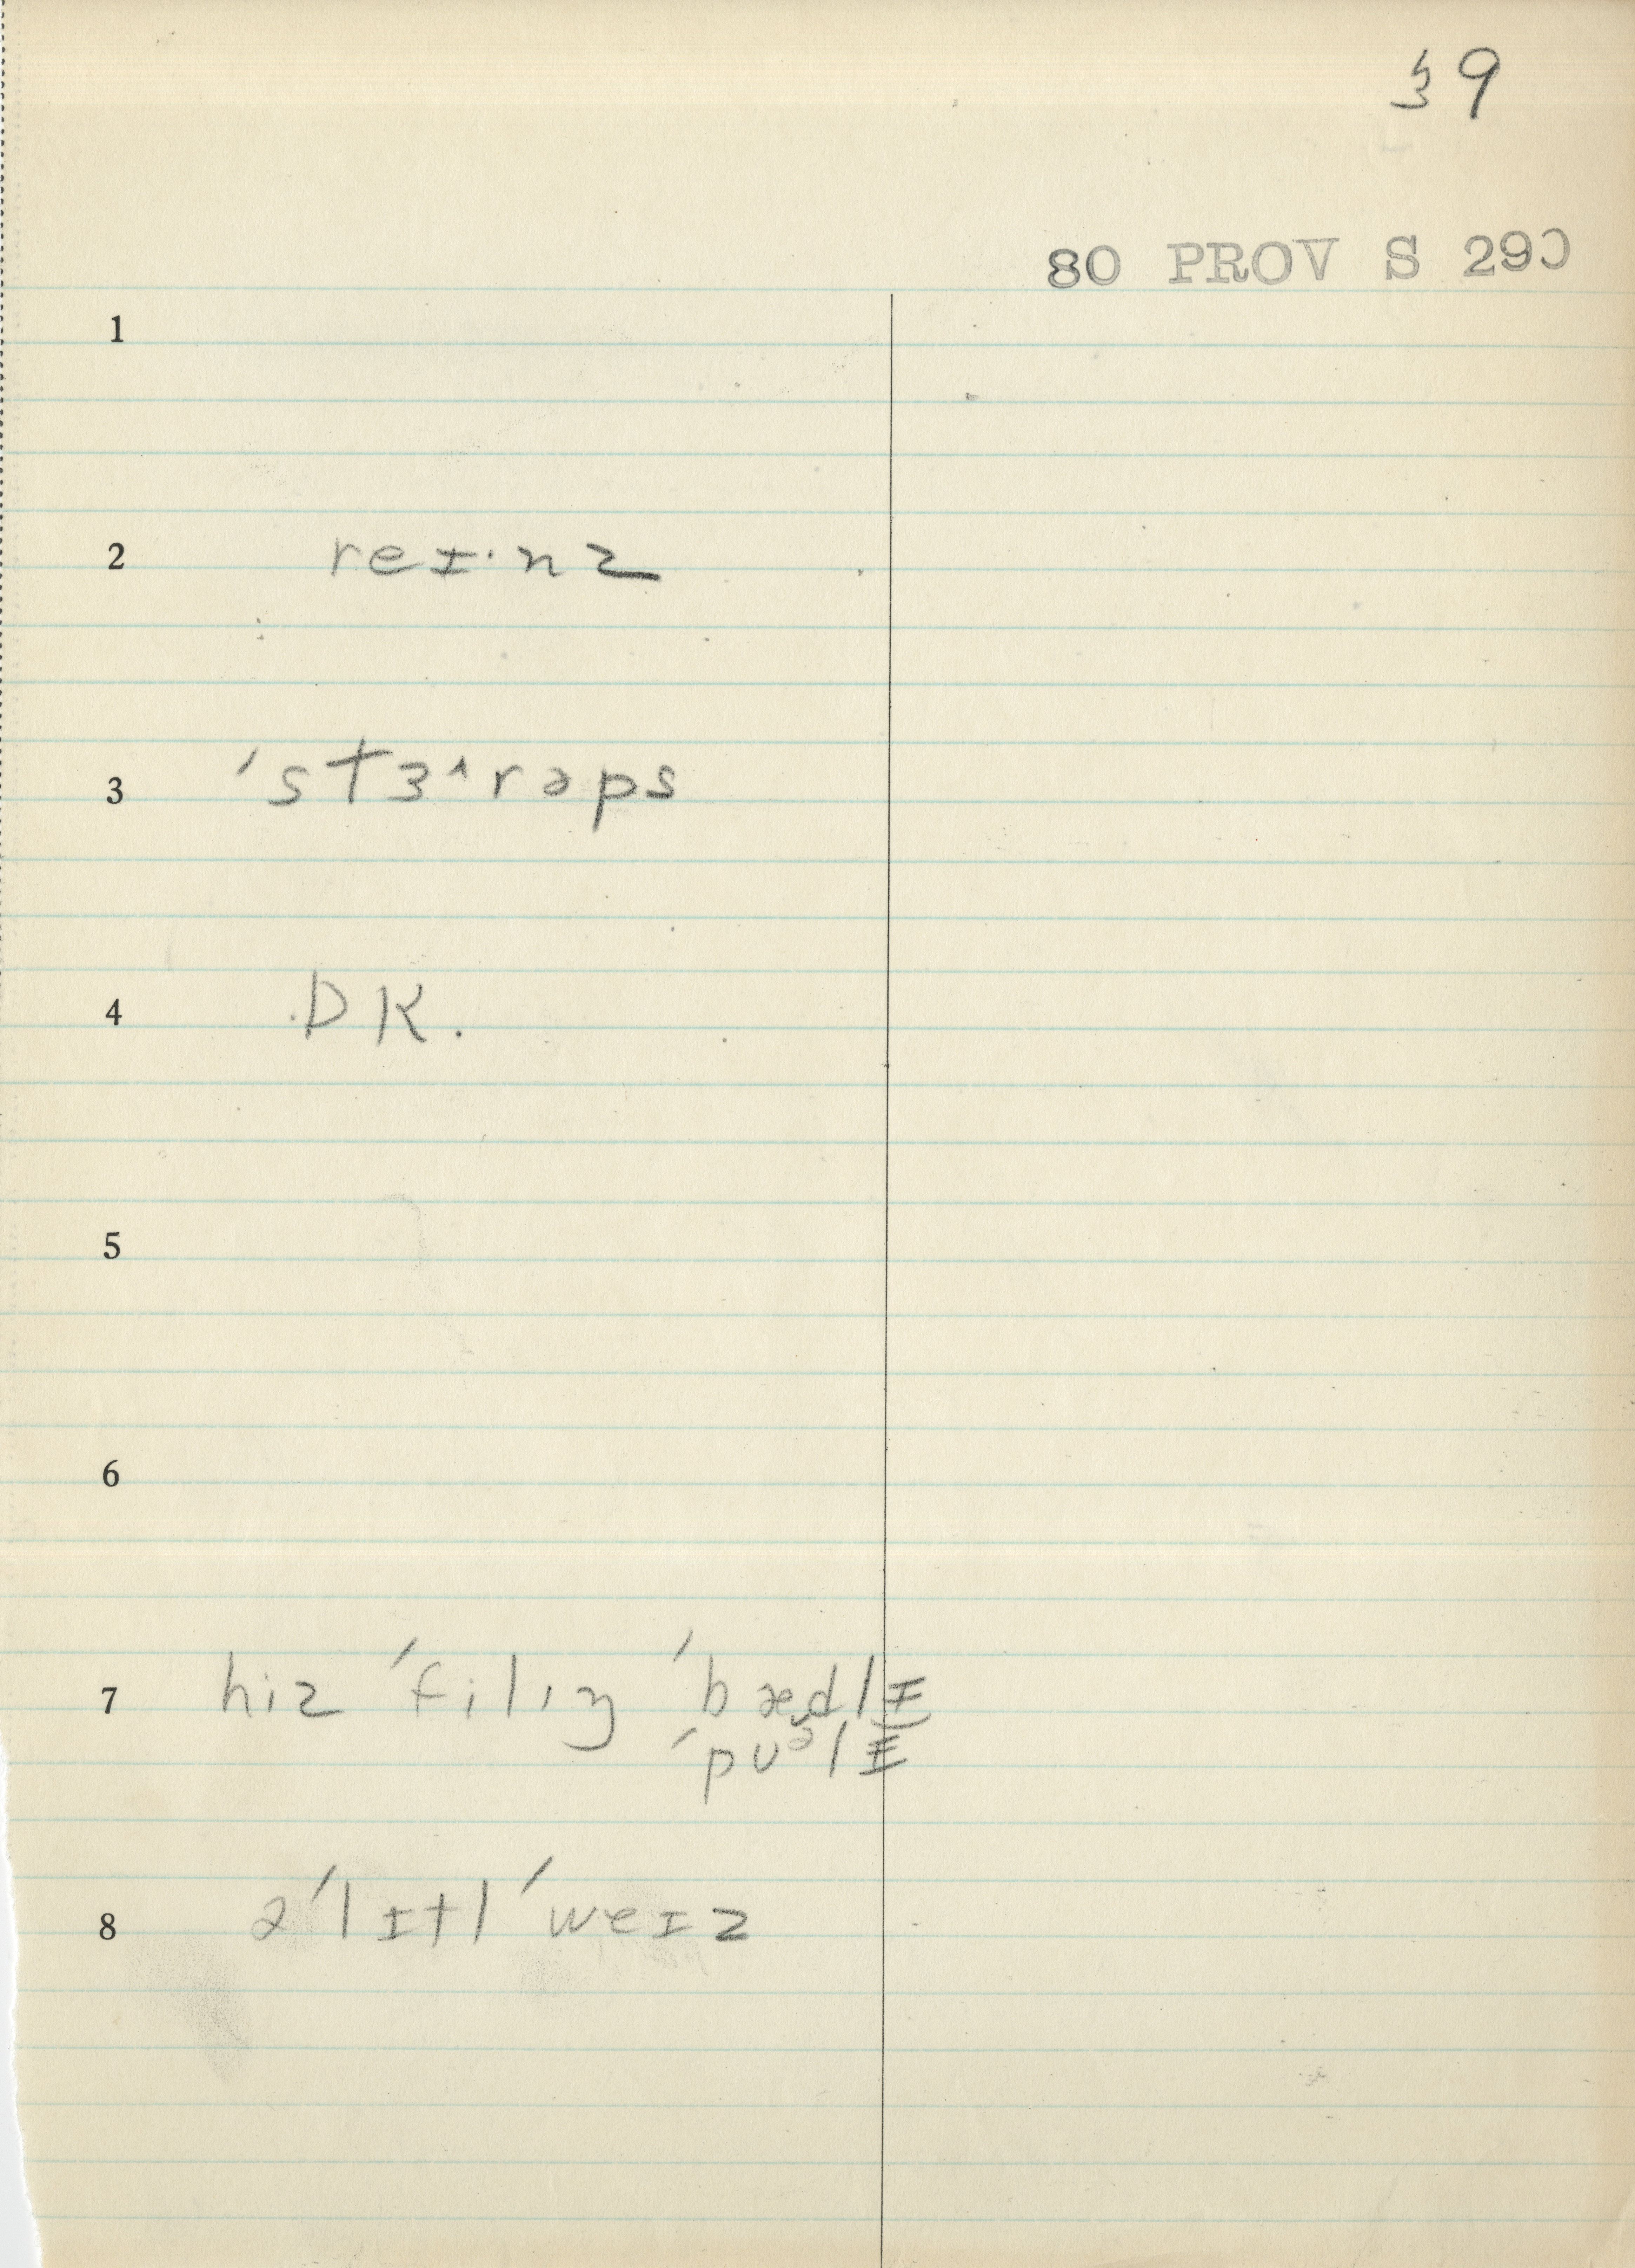 39
80 PROV S 290
1
2 reɪ·nz
3 ˈstɜ˄rəps
4 DK.
5
6
7 hiz ˈfilɪŋ ˈbædlɪ
ˈpʊᵊlɪ
8 əˈlɪtl ˈweɪz